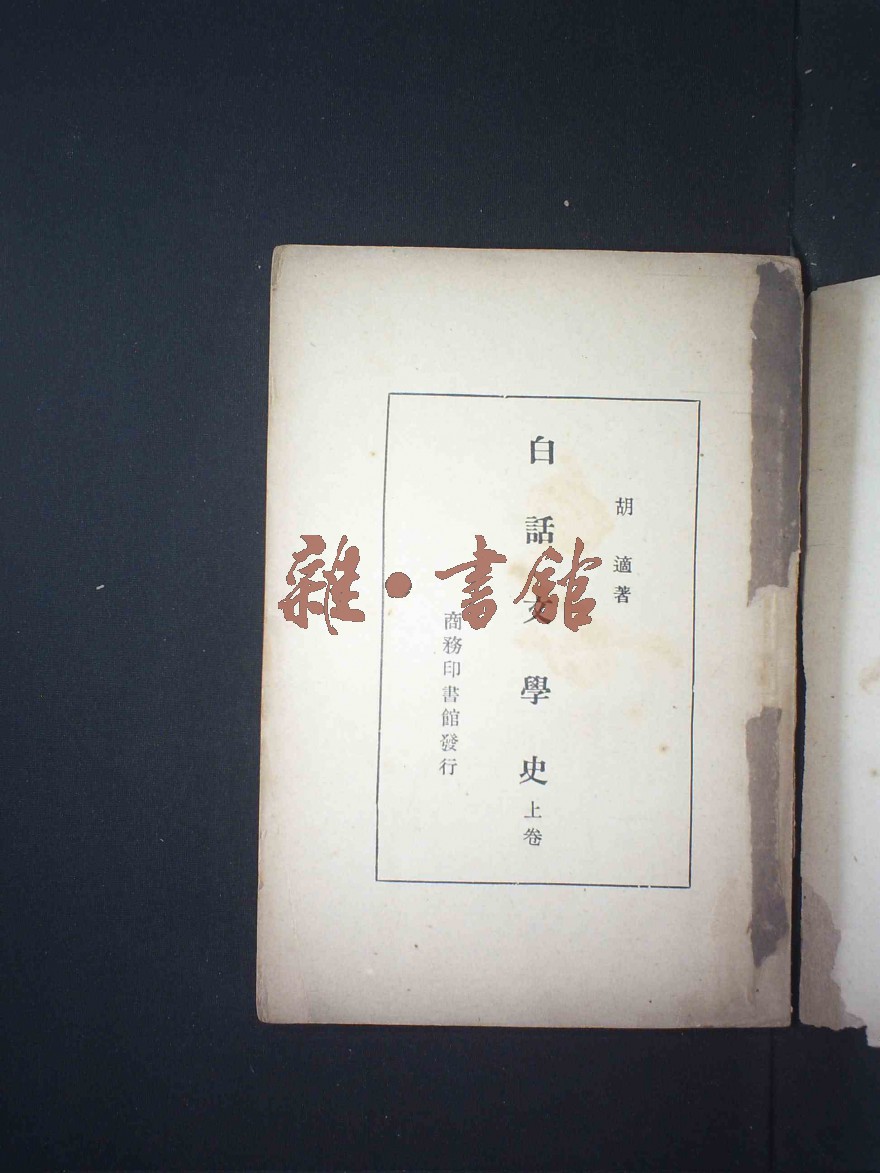 胡適著
白話文學史上卷
商務印書館發行
雜·書館